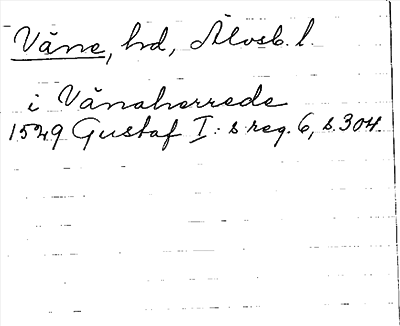 Väne, hd, Älvsb. l.
i Vänaherrede
1529 Gustaf I:s reg. 6, s. 304.